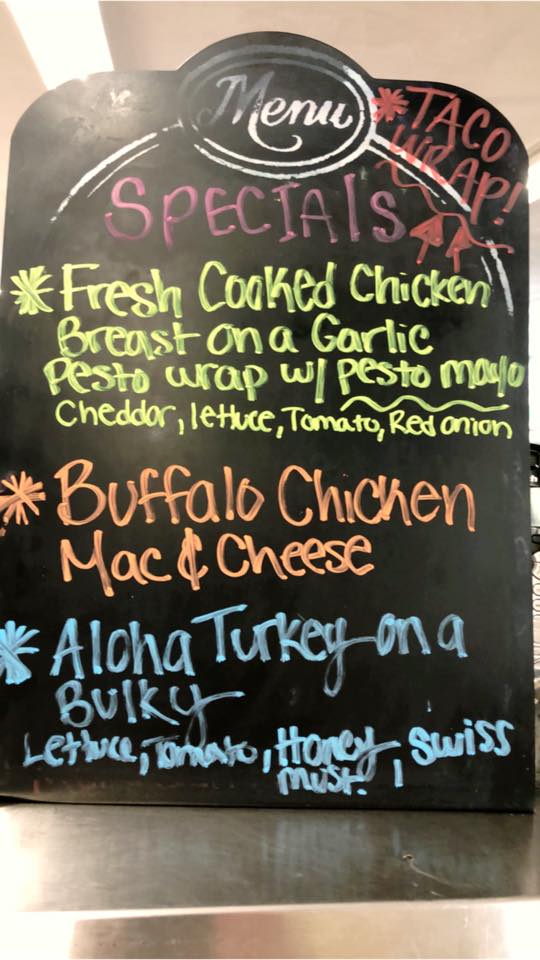 Menu
* TACO
WRAP!
SPECIAlS
* Fresh Cooked Chicken
Breast on a Garlic
Pesto wrap w/ pesto mayo
Cheddar, lettuce, Tomato, Red onion
* Buffalo Chicken
Mac & Cheese
* Aloha Turkey on a
Bulky
Lettuce, Tomato, Honey, Swiss
must.